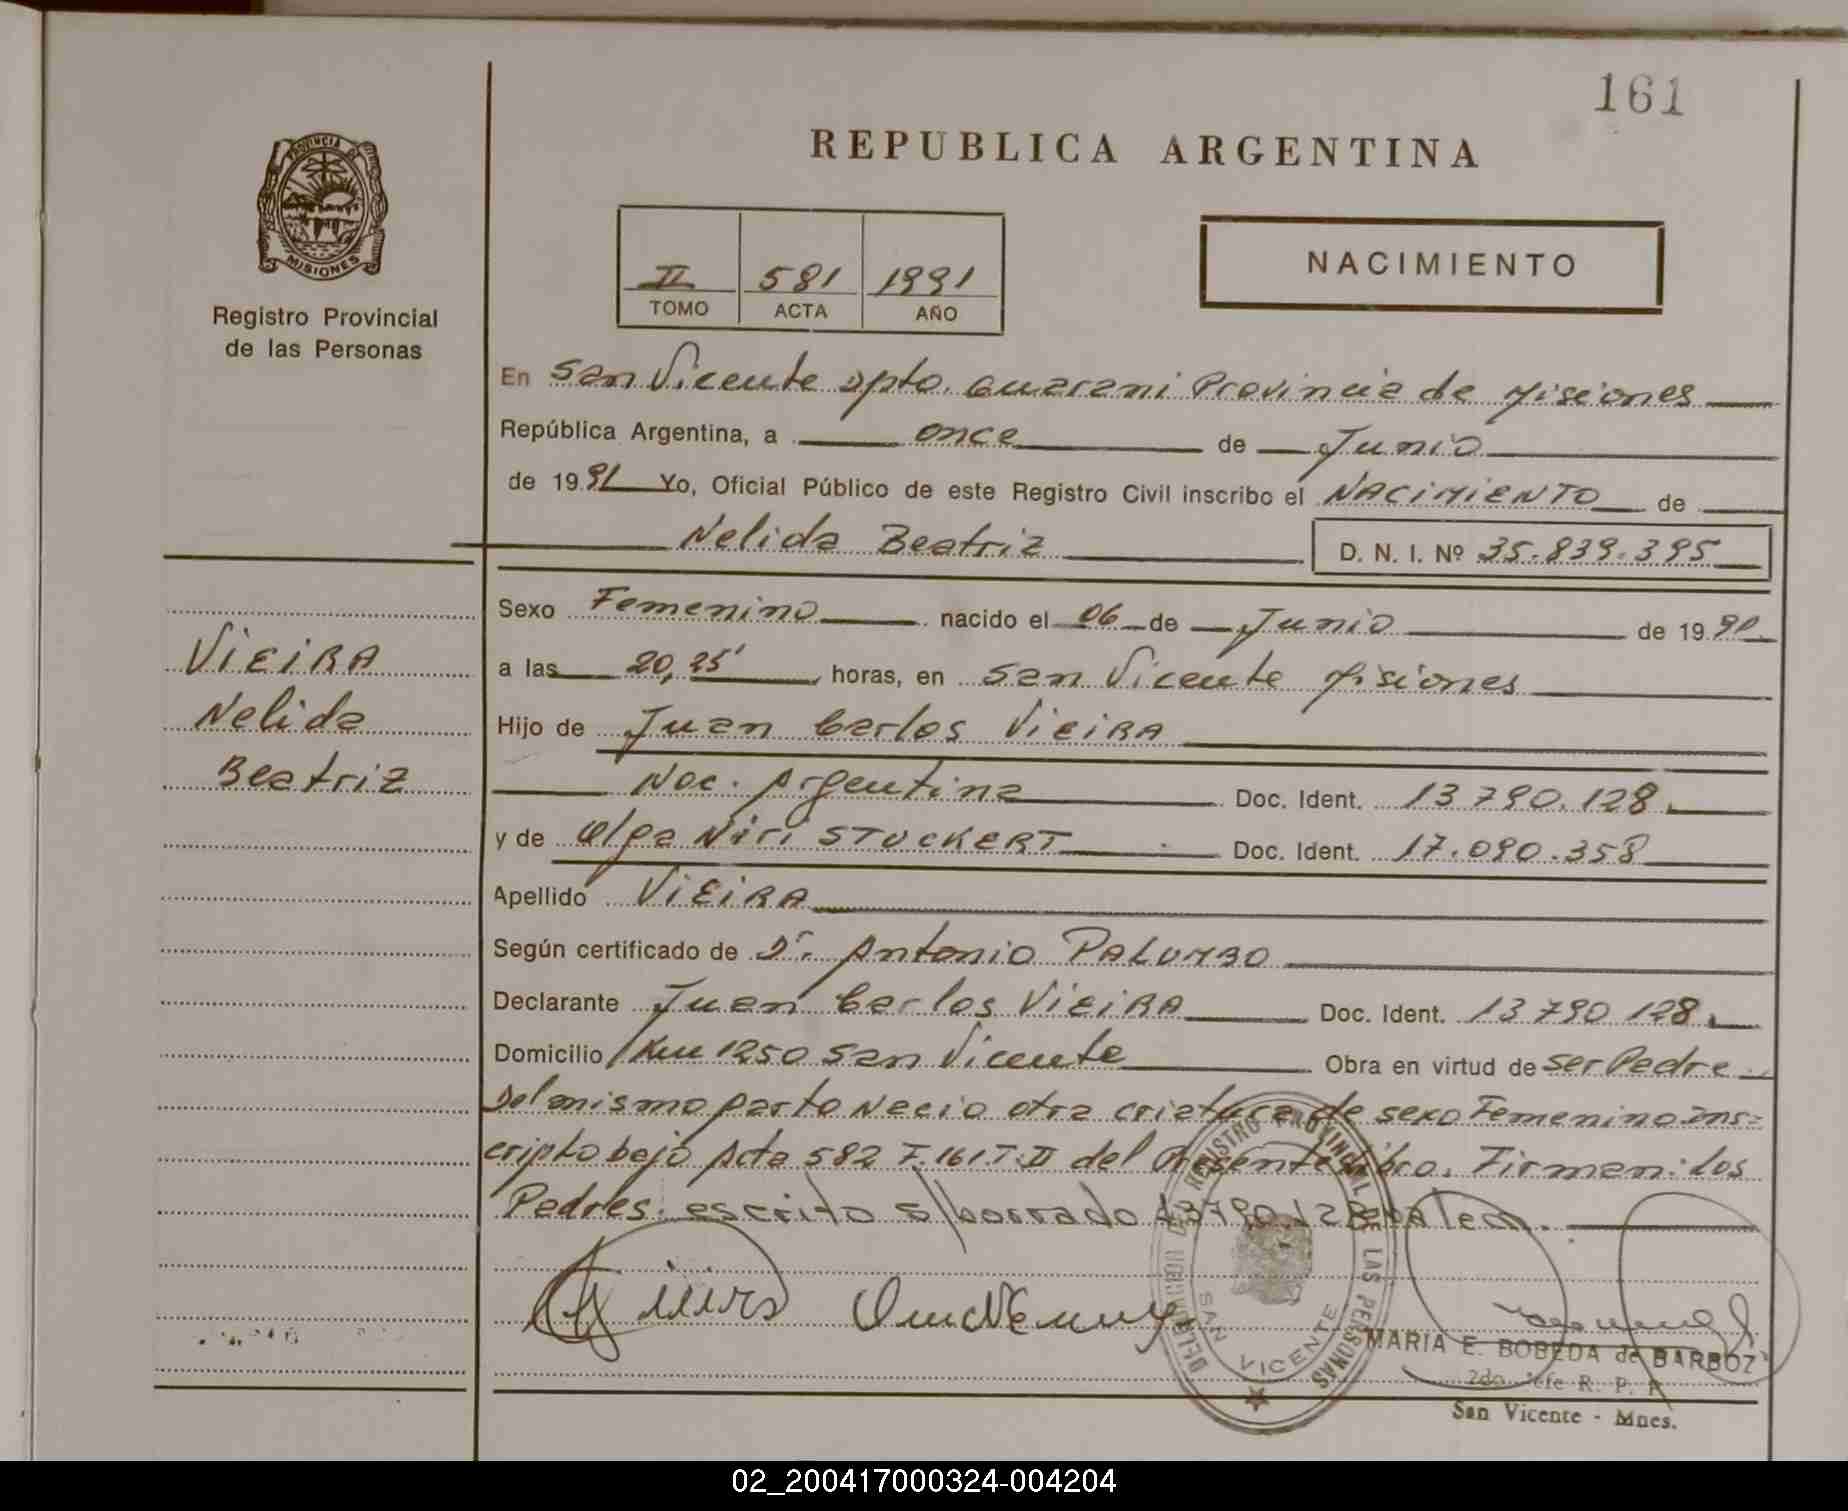 161
PROVINCIA DE
MISIONES
Registro Provincial
de las Personas
REPUBLICA ARGENTINA
II 581 1991
TOMO ACTA AÑO
NACIMIENTO
En San Vicente Dpto. Guarani Provincia de Misiones
República Argentina, a once de Junio
de 1991 Yo, Oficial Público de este Registro Civil inscribo el NACIMIENTO de
Nelida Beatriz D. N. I. Nº 35.839.395
Sexo Femenino nacido el 06 de Junio de 19
a las 20, horas, en San Vicente Misiones
Hijo de Juan Carlos VIEIRA
Nac. Argentina Doc. Ident. 13 790.128.
y de Olga STUCKERT Doc. Ident. 17.090.358
Apellido VIEIRA
Según certificado de Dr. Antonio PALUMBO
Declarante Juan Carlos VIEIRA Doc. Ident. 13 790 128.
Domicilio Km 1250 San Vicente Obra en virtud de ser Padre
Del mismo parto Nacio otra criatura de sexo Femenino ins=
cripto bajo Acta 582 F.161.T.II del Presente libro. Firman: Los
Padres. escrito s/borrado 13790.128 valen.
VIEIRA
Nelida
Beatriz
DELEGACION DE REGISTRO PROVINCIAL DE LAS PERSONAS
SAN VICENTE
MARIA E. BOBEDA de BARBOZ
2do. Jefe R. P. P.
San Vicente - Mnes.
02_200417000324-004204